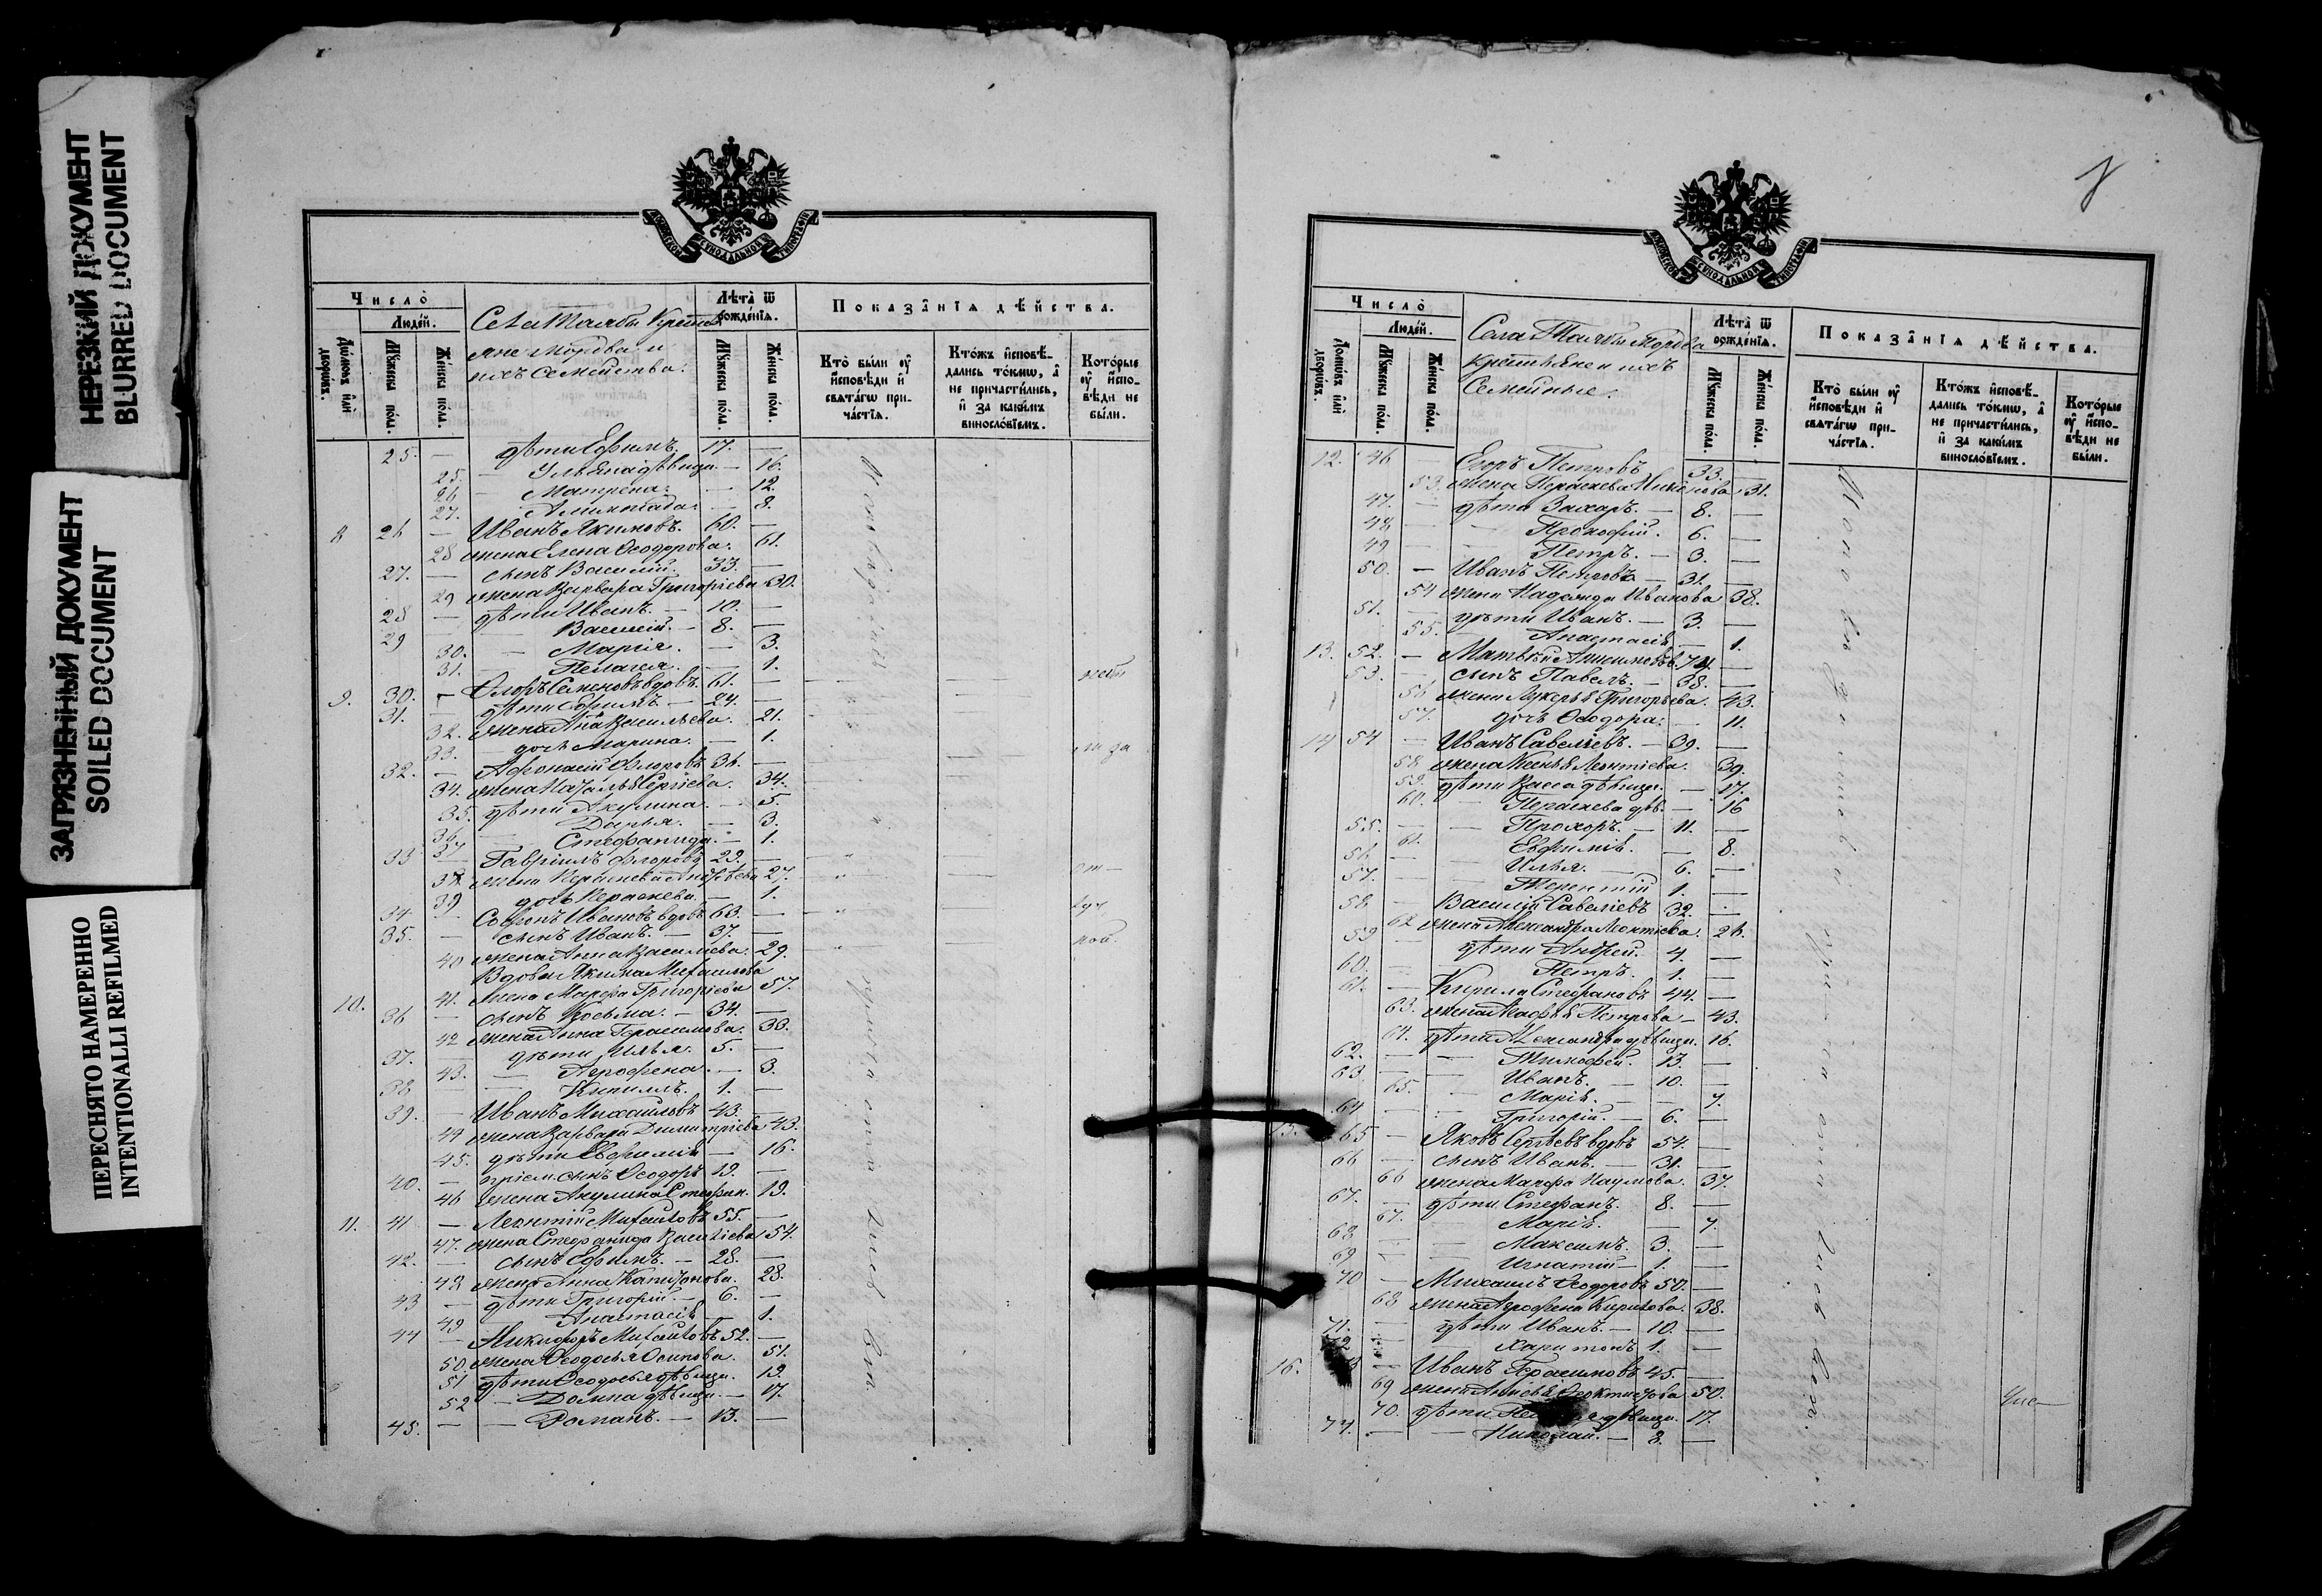 НЕРЕЗКИЙ ДОКУМЕНТ
BLURRED DOCUMENT
ЗАГРЯЗНЕННЫЙ ДОКУМЕНТ
SOILED DOCUMENT
ПЕРЕСНЯТО НАМЕРЕННО
INTENTIONALLI REFILMED
Число̀
Людей.
Села Талбы Кресть
яне Мордва и
ихъ семейства.
Лѣта̀ ѿ рожденїѧ.
Показа̂нїѧ дѣйства.
Домѡвъ и҆лѝ дворѡвъ.
Мꙋжеска пола.
Женска пола.
Мꙋжеска пола.
Женска пола.
Кто̀ были оу҆ и҆сповѣди и҆ свѧтагѡ причастїѧ.
Ктожъ и҆сповѣдались токмѡ, а҆ не причастились, и҆ за какимъ винословїемъ.
Которые оу҆ исповѣди не были.
25. — дѣти Ефимъ. 17. —
25. — Ульяна дѣвица — 16.
26 — Матрена. — 12.
27. 8.
8 26 — Иванъ Якимовъ. 60. —
28 жена Елена Ѳеодорова. 61.
27. — сынъ Василій. 33. —
29 жена Варвара Григоріева 30.
28 — дѣти Иванъ. — 10. —
29 Василій. — 8. —
30. — Марія. — 3.
31. Пелагея. — 1.
9. 30. — Флоръ Семеновъ вдовъ. 61. —
31. — дѣти Ефимъ — 24. —
32. жена Анна Васильева. 21.
33. дочь Марина. — 1.
32. — Афонасій Флоровъ 36. —
34. жена Наталья Сергіева. 34.
35. дѣти Акулина. — 5.
36. Дарья. — 3.
37 Стефанида. — 1.
33 — Гавріилъ Флоровъ 29. —
38. жена Параскева Андрѣева 27.
39 дочь Параскева. — 1.
34. — Софронъ Ивановъ вдовъ 63. —
35. — сынъ Иванъ. — 37. —
40 жена Анна Василіева. 29.
Вдова Якима Михаилова
10. 41. жена Марфа Григоріева 57.
36 — сынъ Козьма. — 34. —
42 жена Анна Герасимова. 30.
37. — дѣти Илья. 5. —
43. — Агрофена. — 3.
38 — Кирилъ. 1. —
39. — Иванъ Михаиловъ 43. —
44 жена Варвара Димитріева 43.
45. дѣти Евфимія — 16.
40. — пріем. сынъ Ѳеодоръ 19. —
46 жена Акулина Стефан. 19.
11. 41 — Леонтій Михаиловъ 55. —
47. жена Стефанида Василіева 54.
42. — сынъ Ефимъ. — 28. —
48 жена Анна Капитонова. 28.
43 — дѣти Григорій. — 6. —
49 — Анастасія — 1.
44 — Никифоръ Михаиловъ 52. —
50. жена Ѳеодосья Осипова. 51.
51 дѣти Ѳеодосья дѣвица. 19.
52 — Домна дѣвица. — 17.
45. — — Романъ. — 13. —
Число̀
Людей.
Села Талбы Мордва
крестьяне и ихъ
Семейные.
Лѣта̀ ѿ рожденїѧ.
Показа̂нїѧ дѣйства.
Домѡвъ и҆лѝ дворѡвъ.
Мꙋжеска пола.
Женска пола.
Мꙋжеска пола.
Женска пола.
Кто̀ были оу҆ и҆сповѣди и҆ свѧтагѡ причастїѧ.
Ктожъ и҆сповѣдались токмѡ, а҆ не причастились, и҆ за какимъ винословїемъ.
Которые оу҆ исповѣди не были.
12. 46 — Егоръ Петровъ 33. —
53. жена Параскева 31.
47. — дѣти Захаръ. — 8. —
48 — — Прокофій. 6. —
49 — — Петръ. — 3. —
50. — Иванъ Петровъ — 31. —
54 жена Надежда Иванова 38.
51. — дѣти Иванъ. — 3. —
55. — Анастасія — 1.
13. 52. — Матвѣй Анисимовъ. 74. —
53. — сынъ Павелъ. — 38. —
56 жена Лукерья Григорьева. 43.
57. дочь Ѳеодора. — 11.
14 54 — Иванъ Савеліевъ. — 39. —
58 жена Ксенья Леонтіева. 39.
59. дѣти Васса дѣвица. — 17.
60. Параскева дѣв. — 16
55. — — Прохоръ. — 11. —
61. Евфимія. — 8.
56. — — Илья. — 6. —
57. — — Терентій 1. —
58. — Василій Савеліевъ 32. —
62 жена Александра Леонтіева. 26.
59 — дѣти Андрей. 4. —
60. — — Петръ. 1. —
61. — Кирила Стефановъ 44. —
63. жена Агафья Петрова — 43.
64. дѣти Александра дѣвица. 16.
62. — — Тимофей. 13. —
63 — Иванъ. — 10. —
65. — Марія. — 7.
64 — — Григорій. — 6. —
15. 65 — Яковъ Сергѣевъ вдовъ 54. —
66 — сынъ Иванъ. — 31. —
66 жена Марфа Наумова. 37.
67. — дѣти Стефанъ. 8. —
67. — Марія. — 7.
68 — — Максимъ. 3. —
69 — — Игнатій — 1. —
70 — Михаилъ Ѳеодоровъ 50. —
68 жена Агрофена Кирилова. 38.
71. — дѣти Иванъ. — 10. —
72 — Харитонъ 1. —
16. Иванъ Герасимовъ 45. —
69 жена 50.
70. дѣти дѣвица. 17.
74. — — Николай. — 8. —